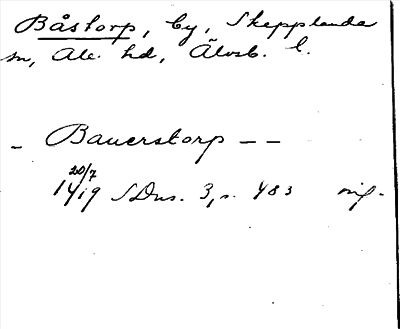 Båstorp, by, Skepplanda
sn, Ale hd, Älvsb. l.
_ Bauerstorp _ _
20/7
1419 SDns. 3, s. 483 orig.